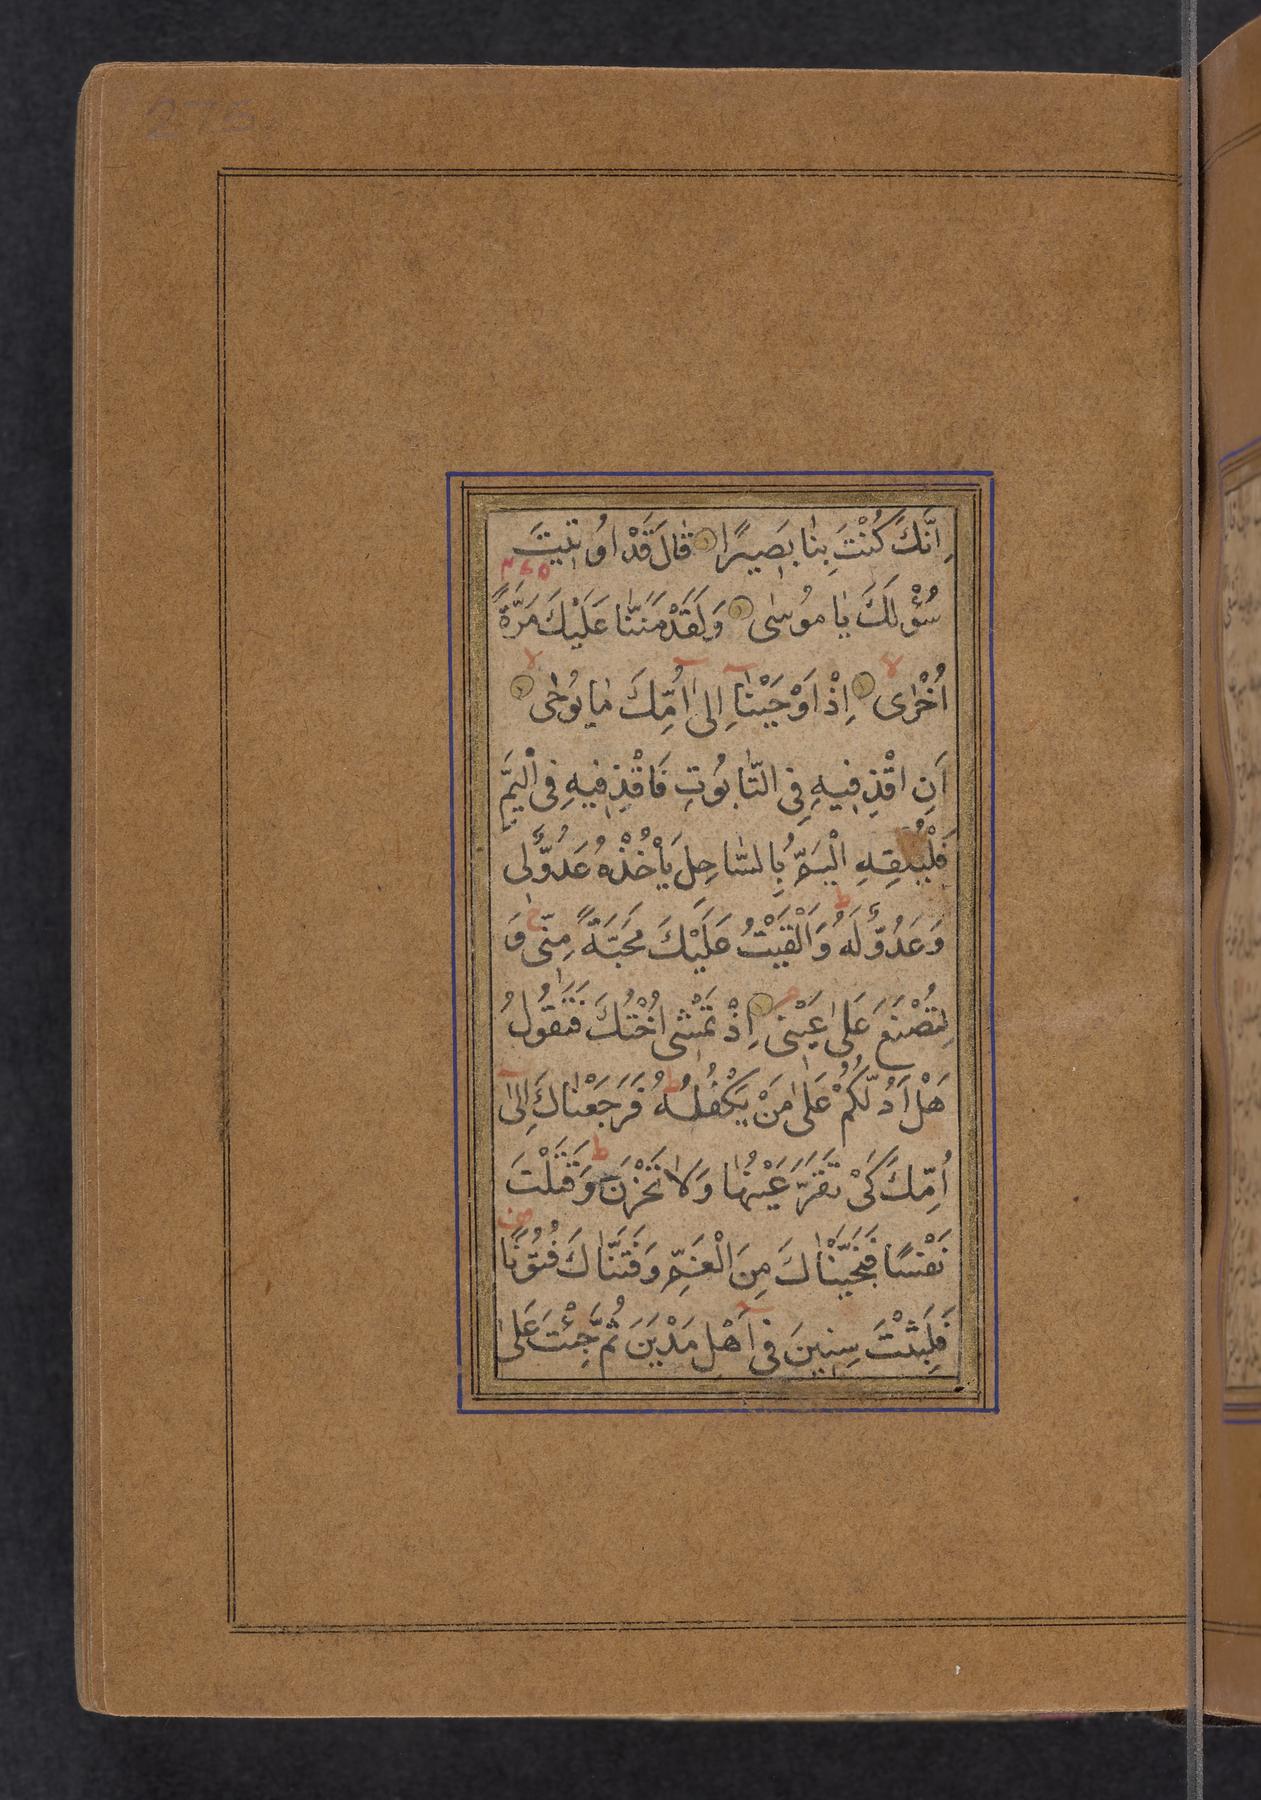 275
اِنَّكَ كُنْتَ بِنٰا بَصيرًا قٰالَ قَدْ اوُتيتَ
سُؤْلَكَ يٰا مُوسٰى وَلَقَدْ مَنَنّٰا عَلَيْكَ مَرَّةً
اُخْرٰى اِذْ اَوْحَيْنٰا اِلىٰ اُمِّكَ مٰا يُوحٰى
اَنِ اقْذِفيهِ فِى التّٰابُوتِ فَاقْذِفيهِ فِى الْيَمِّ
فَلْيُلْقِهِ الْيَمُّ بِالسّٰاحِلِ يَأْخُذْهُ عَدُوٌّ لى
وَعَدُوٌّ لَهُ وَاَلْقَيْتُ عَلَيْكَ مَحَبَّةً مِنّى وَ
لِتُصْنَعَ عَلىٰ عَيْنى اِذْ تَمْشى اُخْتُكَ فَتَقُولُ
هَلْ اَدُلُّكُمْ عَلىٰ مَنْ يَكْفُلُهُ فَرَجَعْنٰاكَ اِلىٰ
اُمِّكَ كَىْ تَقَرَّ عَيْنُهٰا وَلٰا تَحْزَنَ وَقَتَلْتَ
نَفْسًا فَنَجَّيْنٰاكَ مِنَ الْغَمِّ وَفَتَنّٰاكَ فُتُونًا
فَلَبِثْتَ سِنينَ فى اَهْلِ مَدْيَنَ ثُمَّ جِئْتَ عَلىٰ